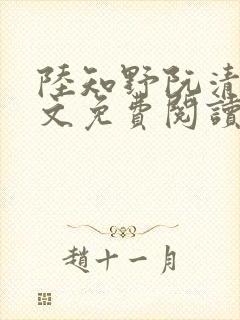 陸知野阮清
文免費閱讀
趙十一月